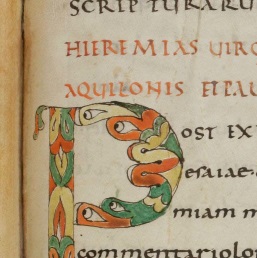 SCRIPTURARU
HIEREMIAS VIRG
AQUILONIS ET PAU
POST EX
esaiae
miam m
commentariolor